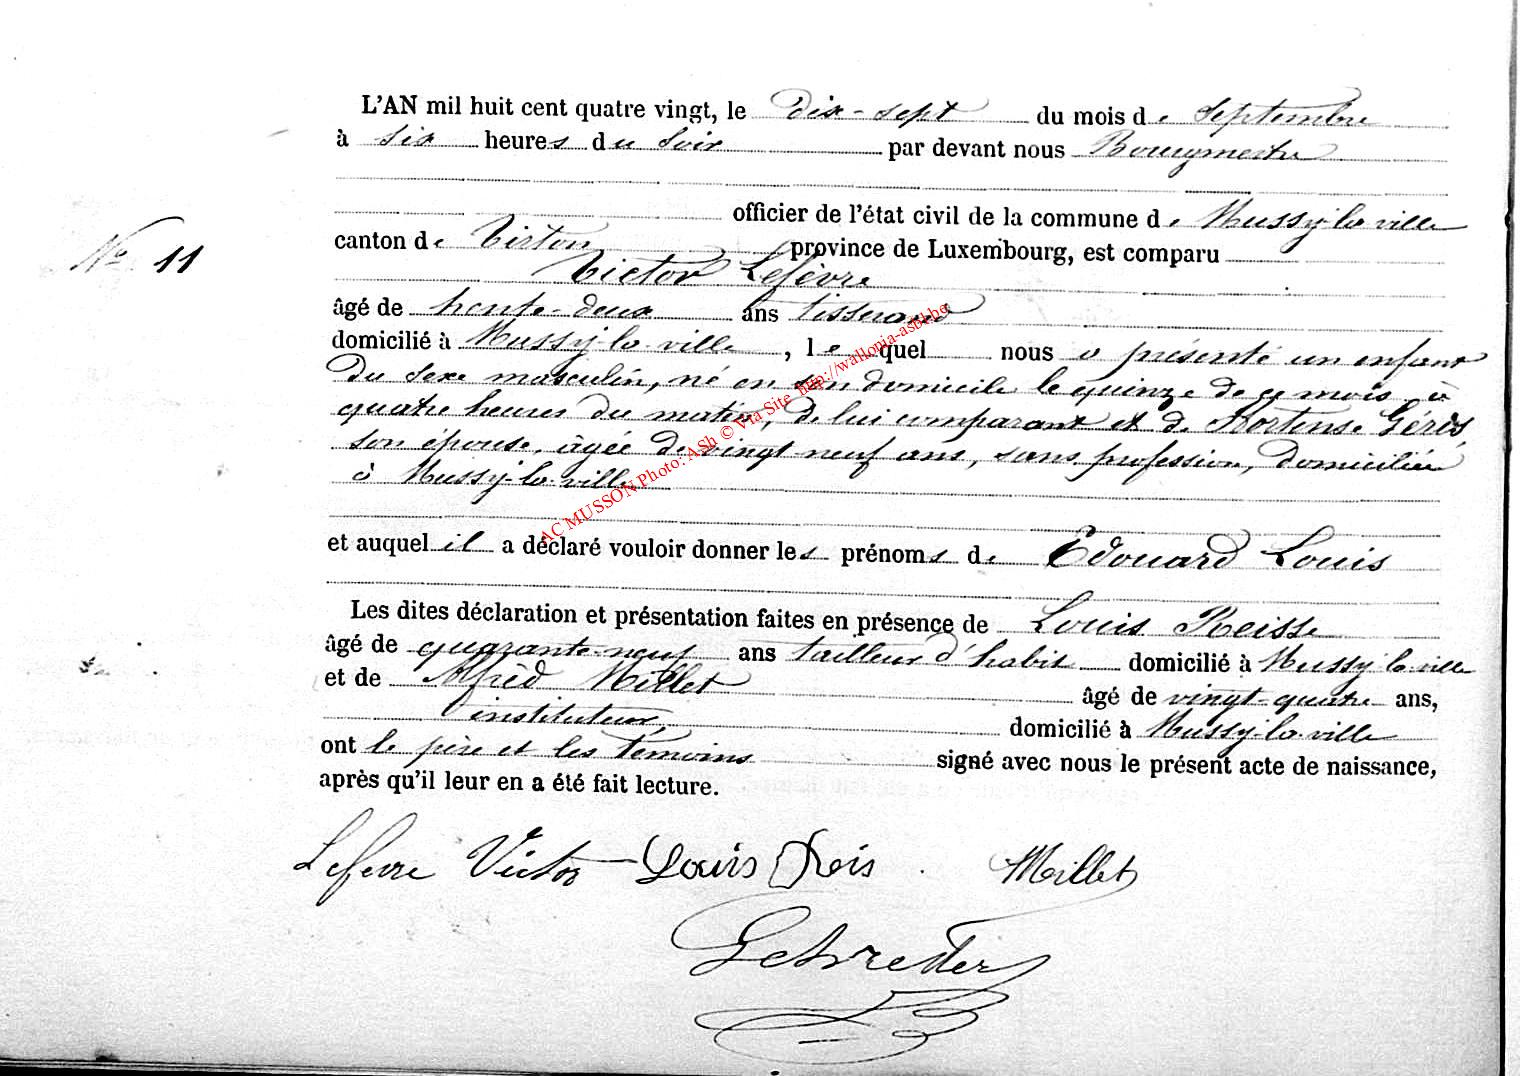 L'AN mil huit cent quatre vingt, le dix-sept du mois de Septembre
à six heures du soir par devant nous Bourgmestre
officier de l'état civil de la commune de Mussy-la-ville
N° 11
canton de Virton province de Luxembourg, est comparu
Victor Lefèvre
âgé de trente-deux ans tisserand
domicilié à Mussy-la-ville, lequel nous a présenté un enfant
du sexe masculin, né en son domicile le quinze de ce mois, à
quatre heures du matin, de lui comparant et de Hortense
son épouse, âgée de vingt neuf ans, sans profession, domiciliée
à Mussy-la-ville
et auquel il a déclaré vouloir donner les prénoms de Edouard Louis
Les dites déclaration et présentation faites en présence de Louis Reisse
âgé de quarante-neuf ans tailleur d'habit domicilié à Mussy-la-ville
et de Alfred Millet âgé de vingt-quatre ans,
instituteur, domicilié à Mussy-la-ville
ont le père et les témoins signé avec nous le présent acte de naissance,
après qu'il leur en a été fait lecture.
Lefevre Victor Louis Reis Millet
AC MUSSON Photo: ASh © Via Site http://wallonia-asbl.be